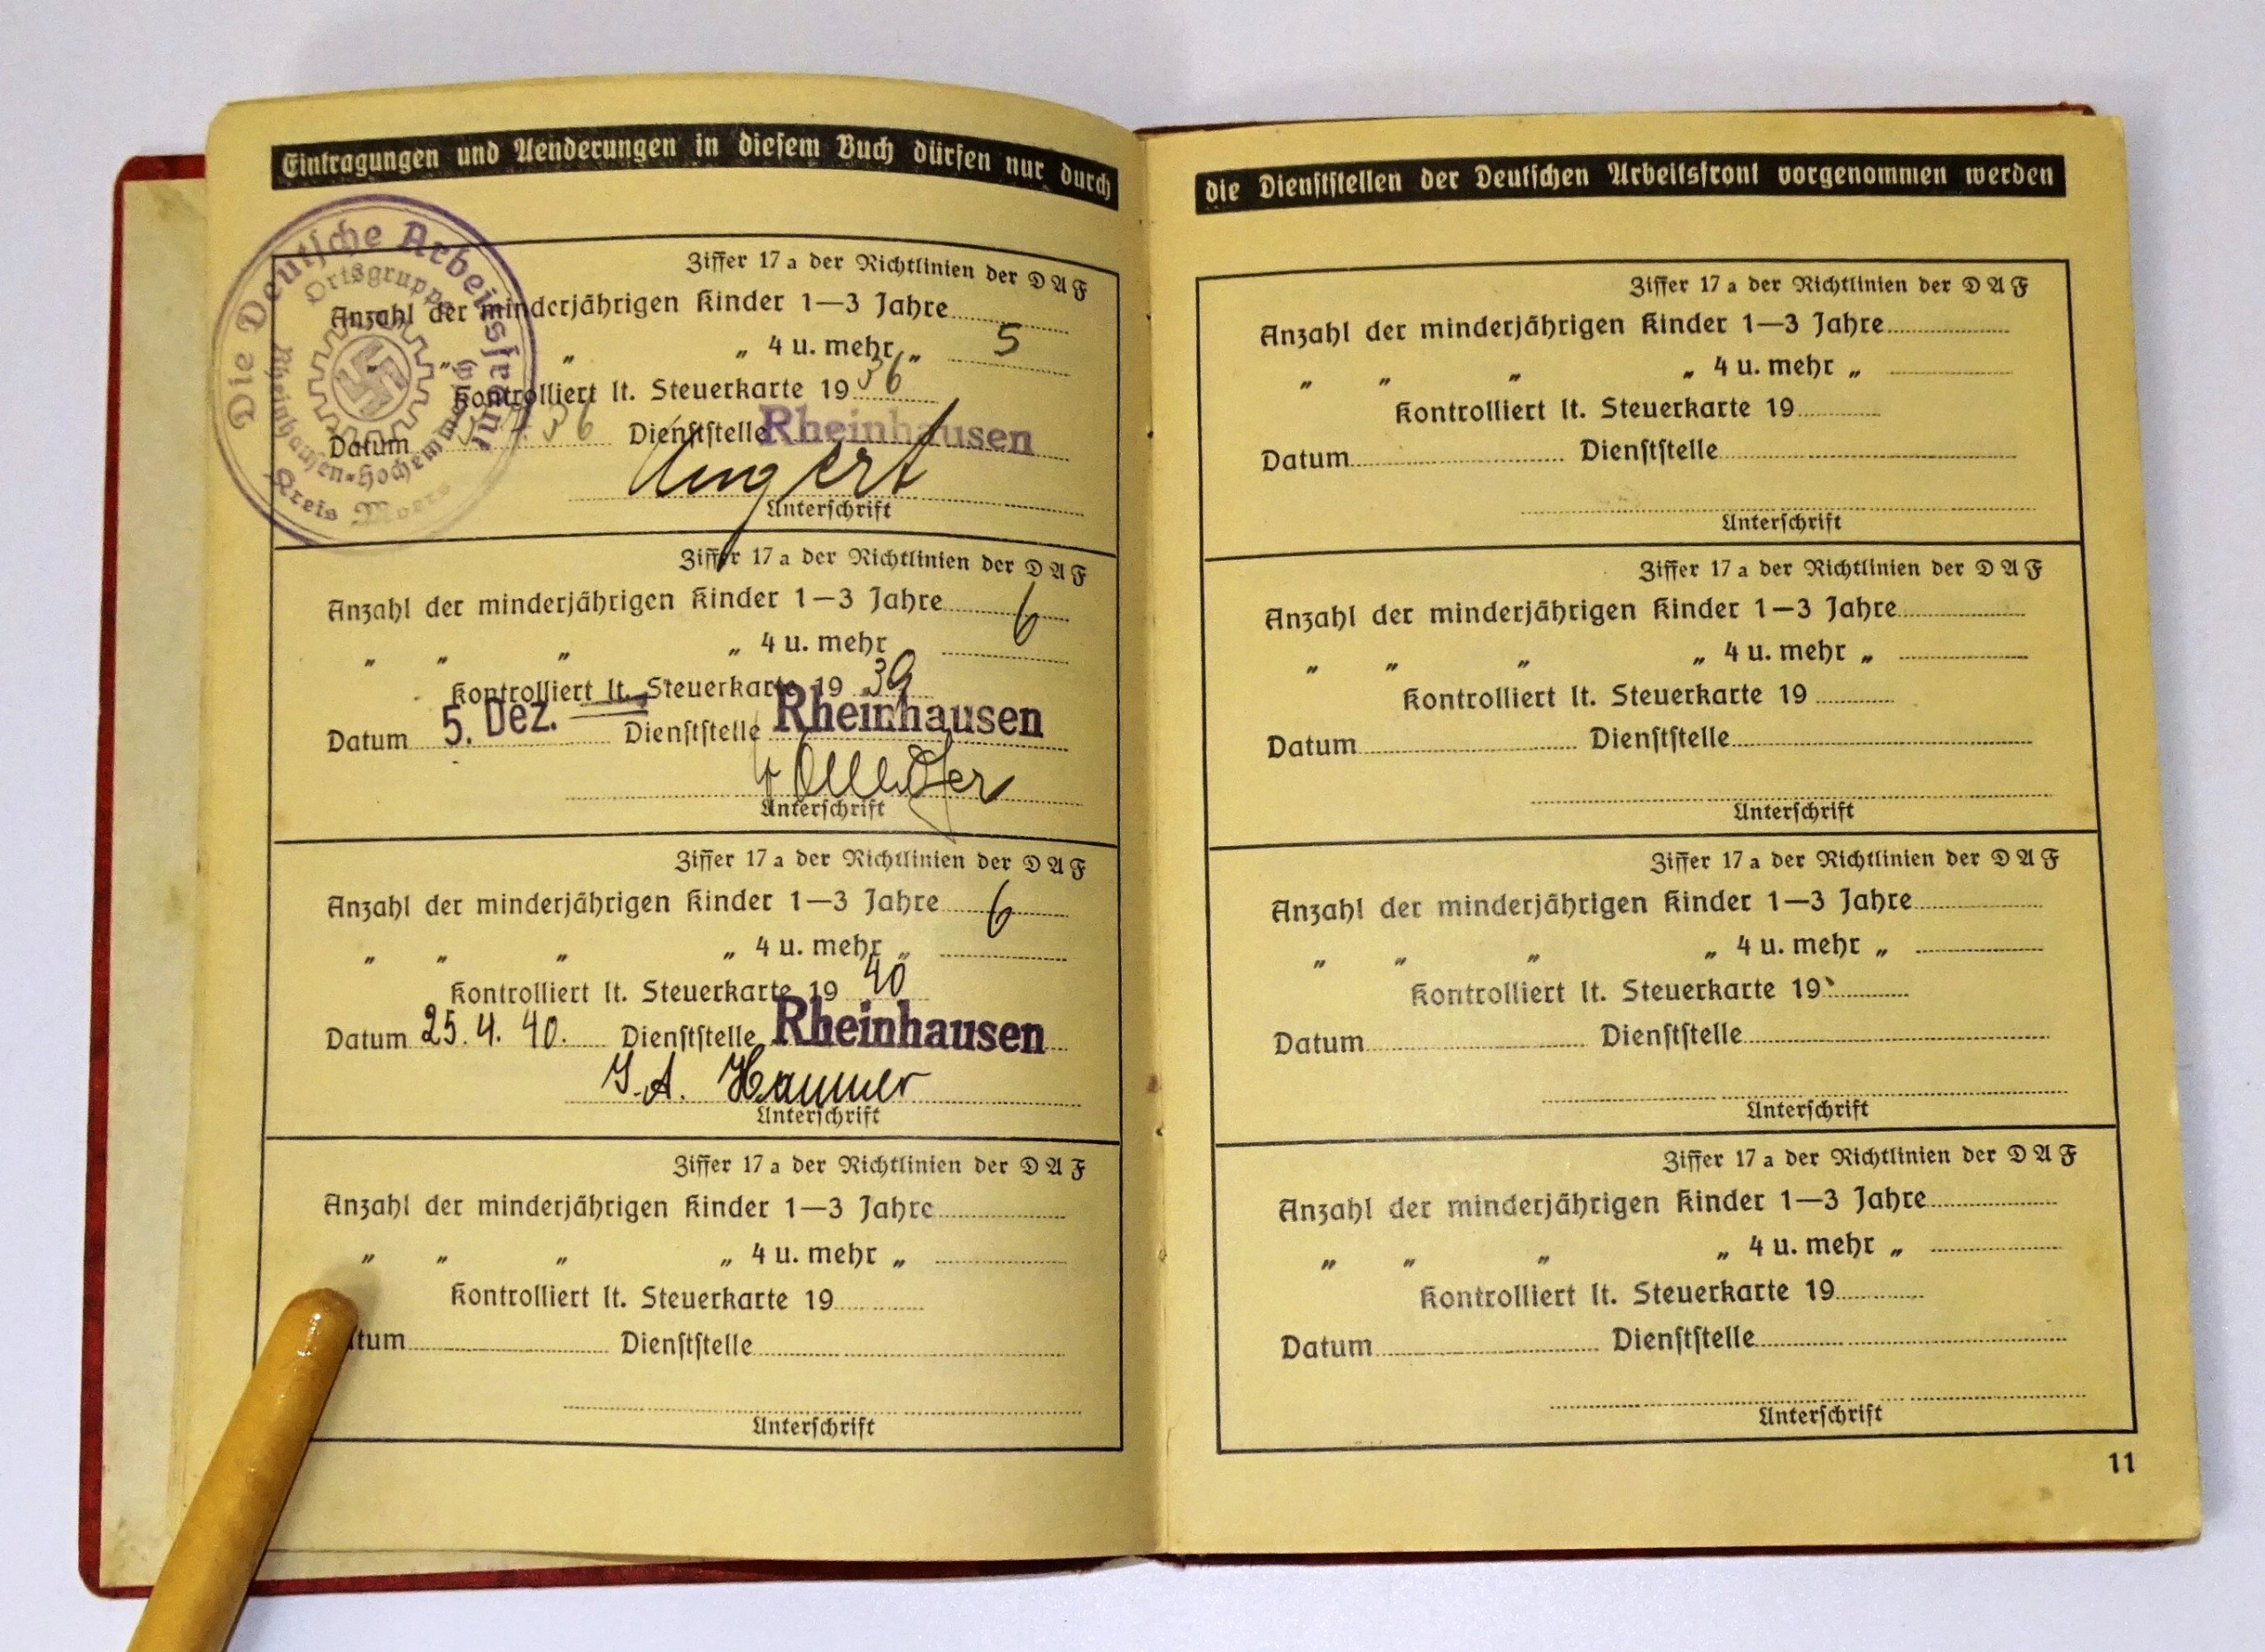 Eintragungen und Aenderungen in diesem Buch dürfen nur durch
Die Deutsche Arbeitsfront
Ortsgruppe
Rheinhausen-Hochemmerich
Kreis Moers
Ziffer 17 a der Richtlinien der D A F
Anzahl der minderjährigen Kinder 1—3 Jahre
„ „ „ 4 u. mehr „ 5
Kontrolliert lt. Steuerkarte 19 36
Datum 36 Dienststelle Rheinhausen
Unterschrift
Ziffer 17 a der Richtlinien der D A F
Anzahl der minderjährigen Kinder 1—3 Jahre 6
„ „ „ „ 4 u. mehr
Kontrolliert lt. Steuerkarte 19 39
Datum 5. Dez. Dienststelle Rheinhausen
Unterschrift
Ziffer 17 a der Richtlinien der D A F
Anzahl der minderjährigen Kinder 1—3 Jahre 6
„ „ „ „ 4 u. mehr „
Kontrolliert lt. Steuerkarte 19 40
Datum 25. 4. 40. Dienststelle Rheinhausen
Unterschrift
Ziffer 17 a der Richtlinien der D A F
Anzahl der minderjährigen Kinder 1—3 Jahre
„ „ „ „ 4 u. mehr „
Kontrolliert lt. Steuerkarte 19
tum Dienststelle
Unterschrift
die Dienststellen der Deutschen Arbeitsfront vorgenommen werden
Ziffer 17 a der Richtlinien der D A F
Anzahl der minderjährigen Kinder 1—3 Jahre
„ „ „ „ 4 u. mehr „
Kontrolliert lt. Steuerkarte 19
Datum Dienststelle
Unterschrift
Ziffer 17 a der Richtlinien der D A F
Anzahl der minderjährigen Kinder 1—3 Jahre
„ „ „ „ 4 u. mehr „
Kontrolliert lt. Steuerkarte 19
Datum Dienststelle
Unterschrift
Ziffer 17 a der Richtlinien der D A F
Anzahl der minderjährigen Kinder 1—3 Jahre
„ „ „ „ 4 u. mehr „
Kontrolliert lt. Steuerkarte 19
Datum Dienststelle
Unterschrift
Ziffer 17 a der Richtlinien der D A F
Anzahl der minderjährigen Kinder 1—3 Jahre
„ „ „ „ 4 u. mehr „
Kontrolliert lt. Steuerkarte 19
Datum Dienststelle
Unterschrift
11